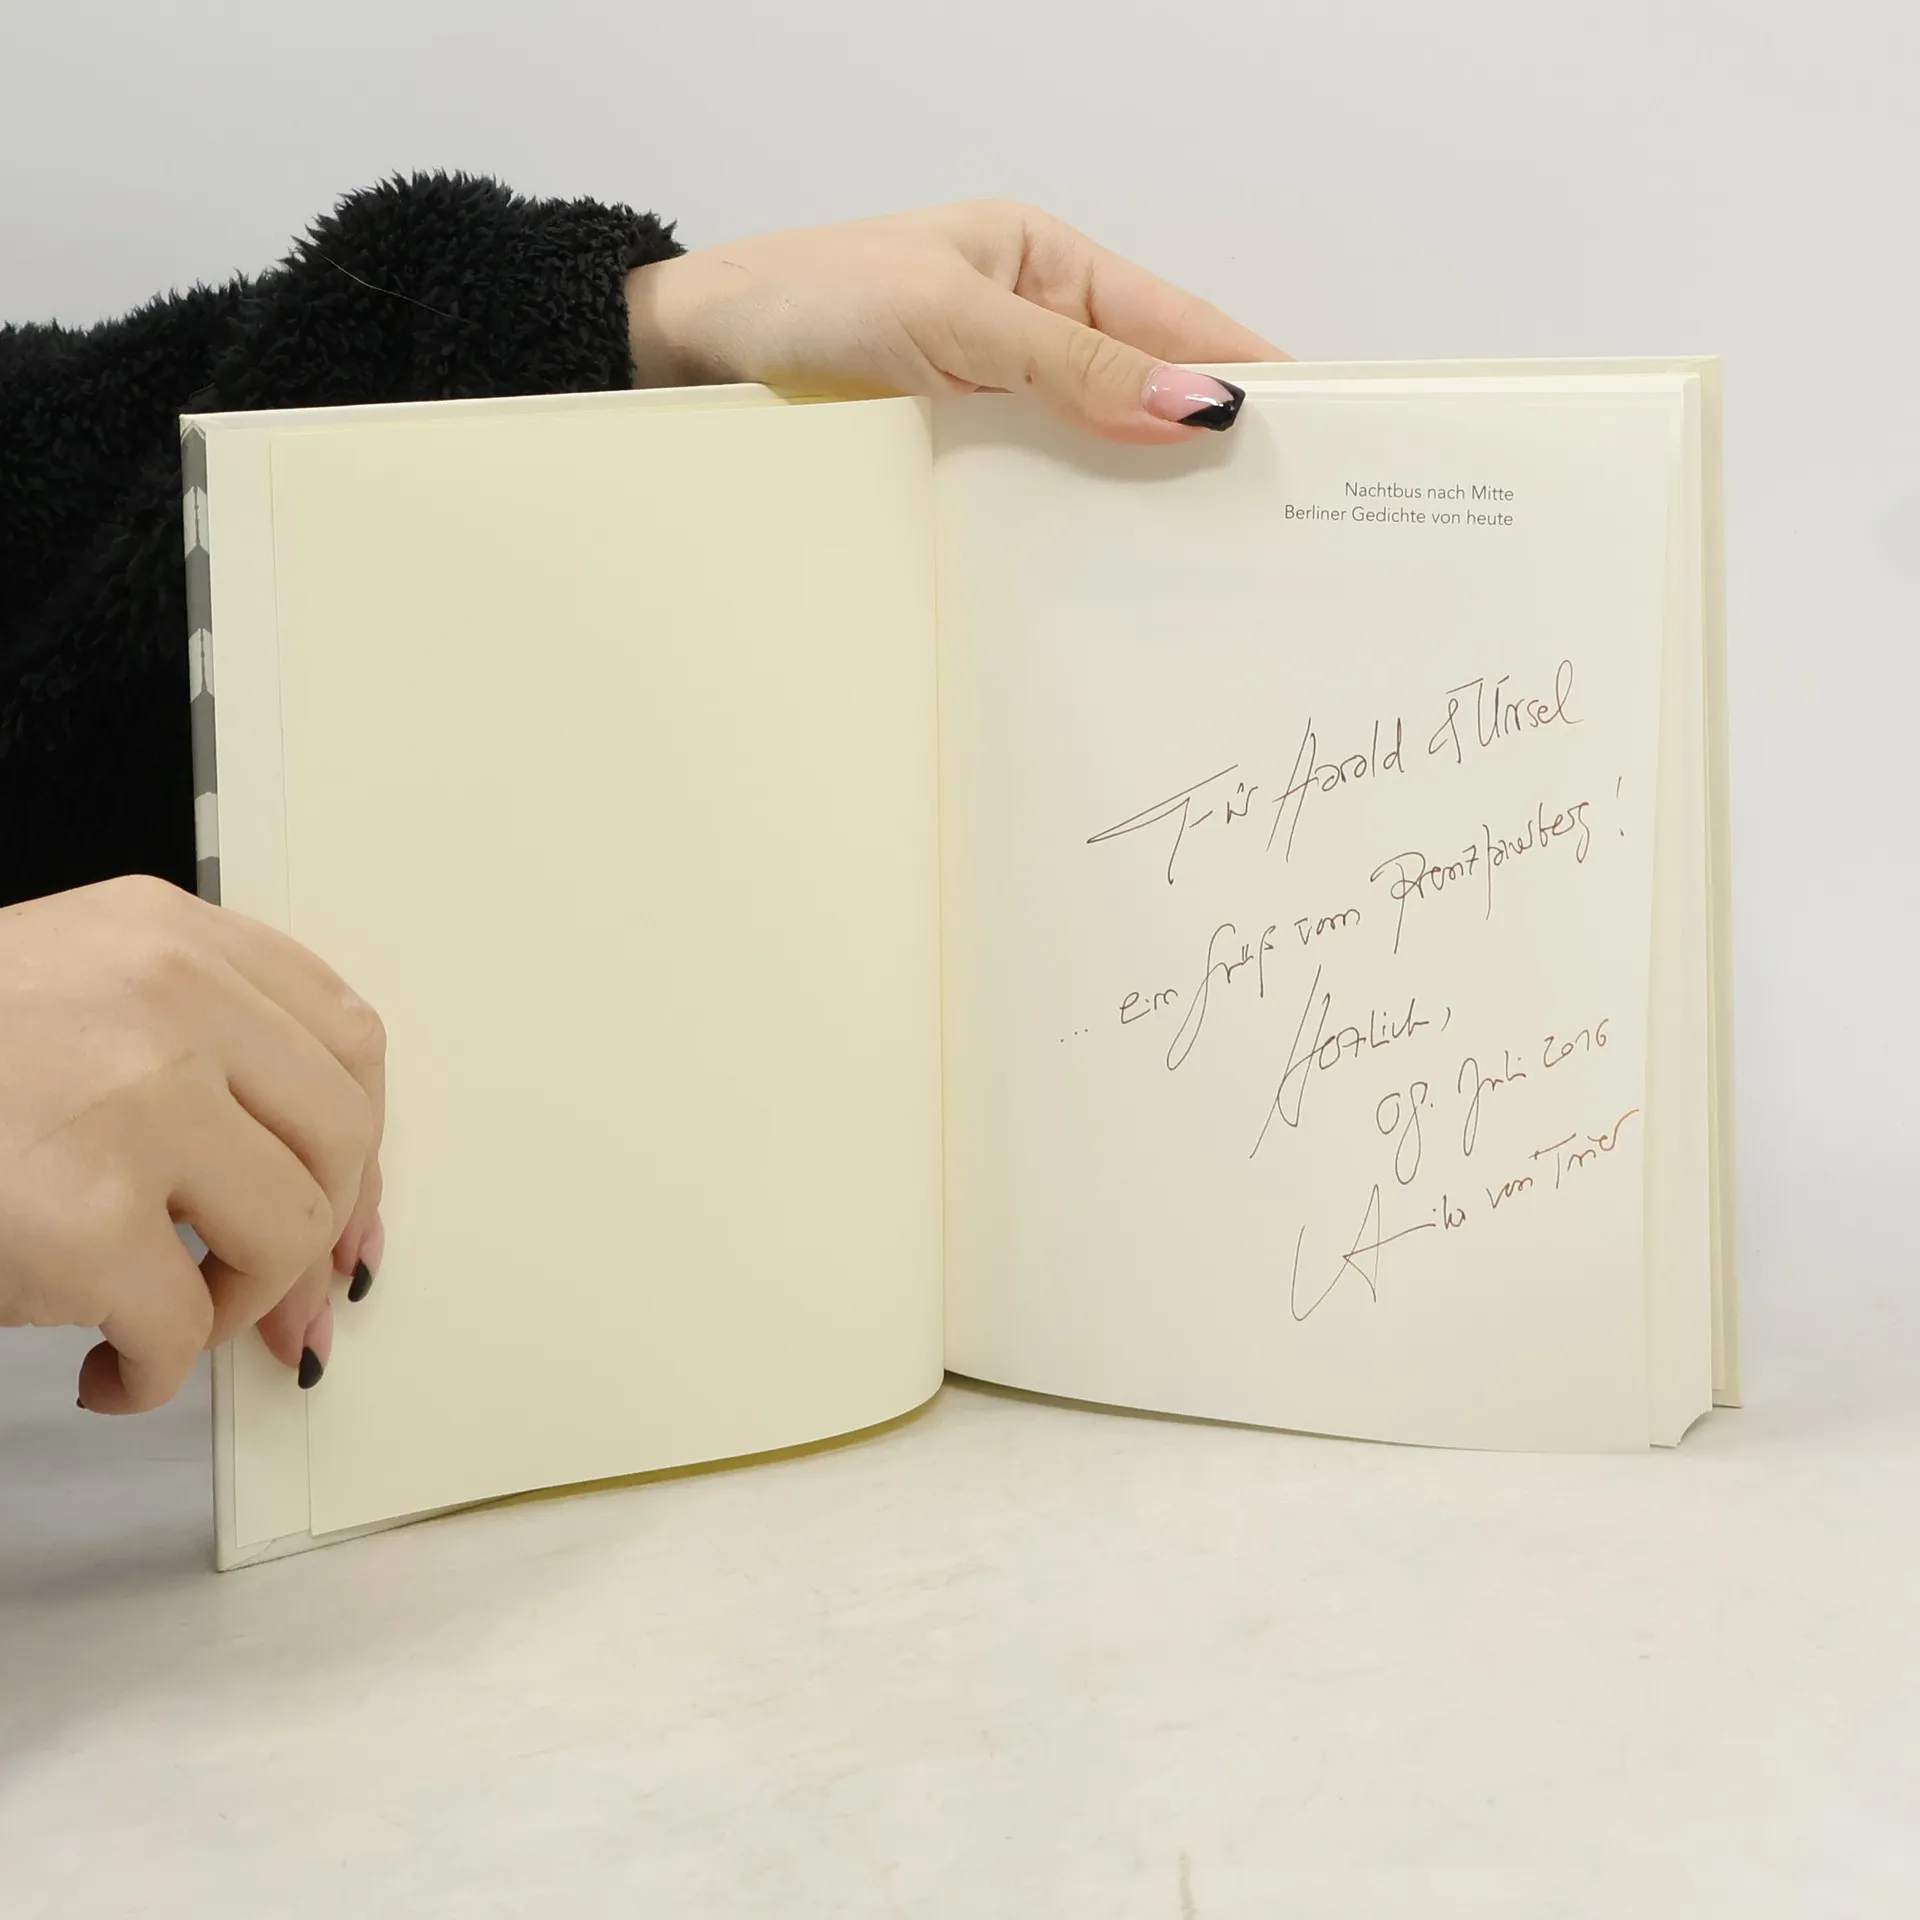 Nachtbus nach Mitte
Berliner Gedichte von heute
Für Harald & Ursel
... ein Gruß vom Prenzlauerberg!
Herzlich,
08. Juli 2016
von Trier